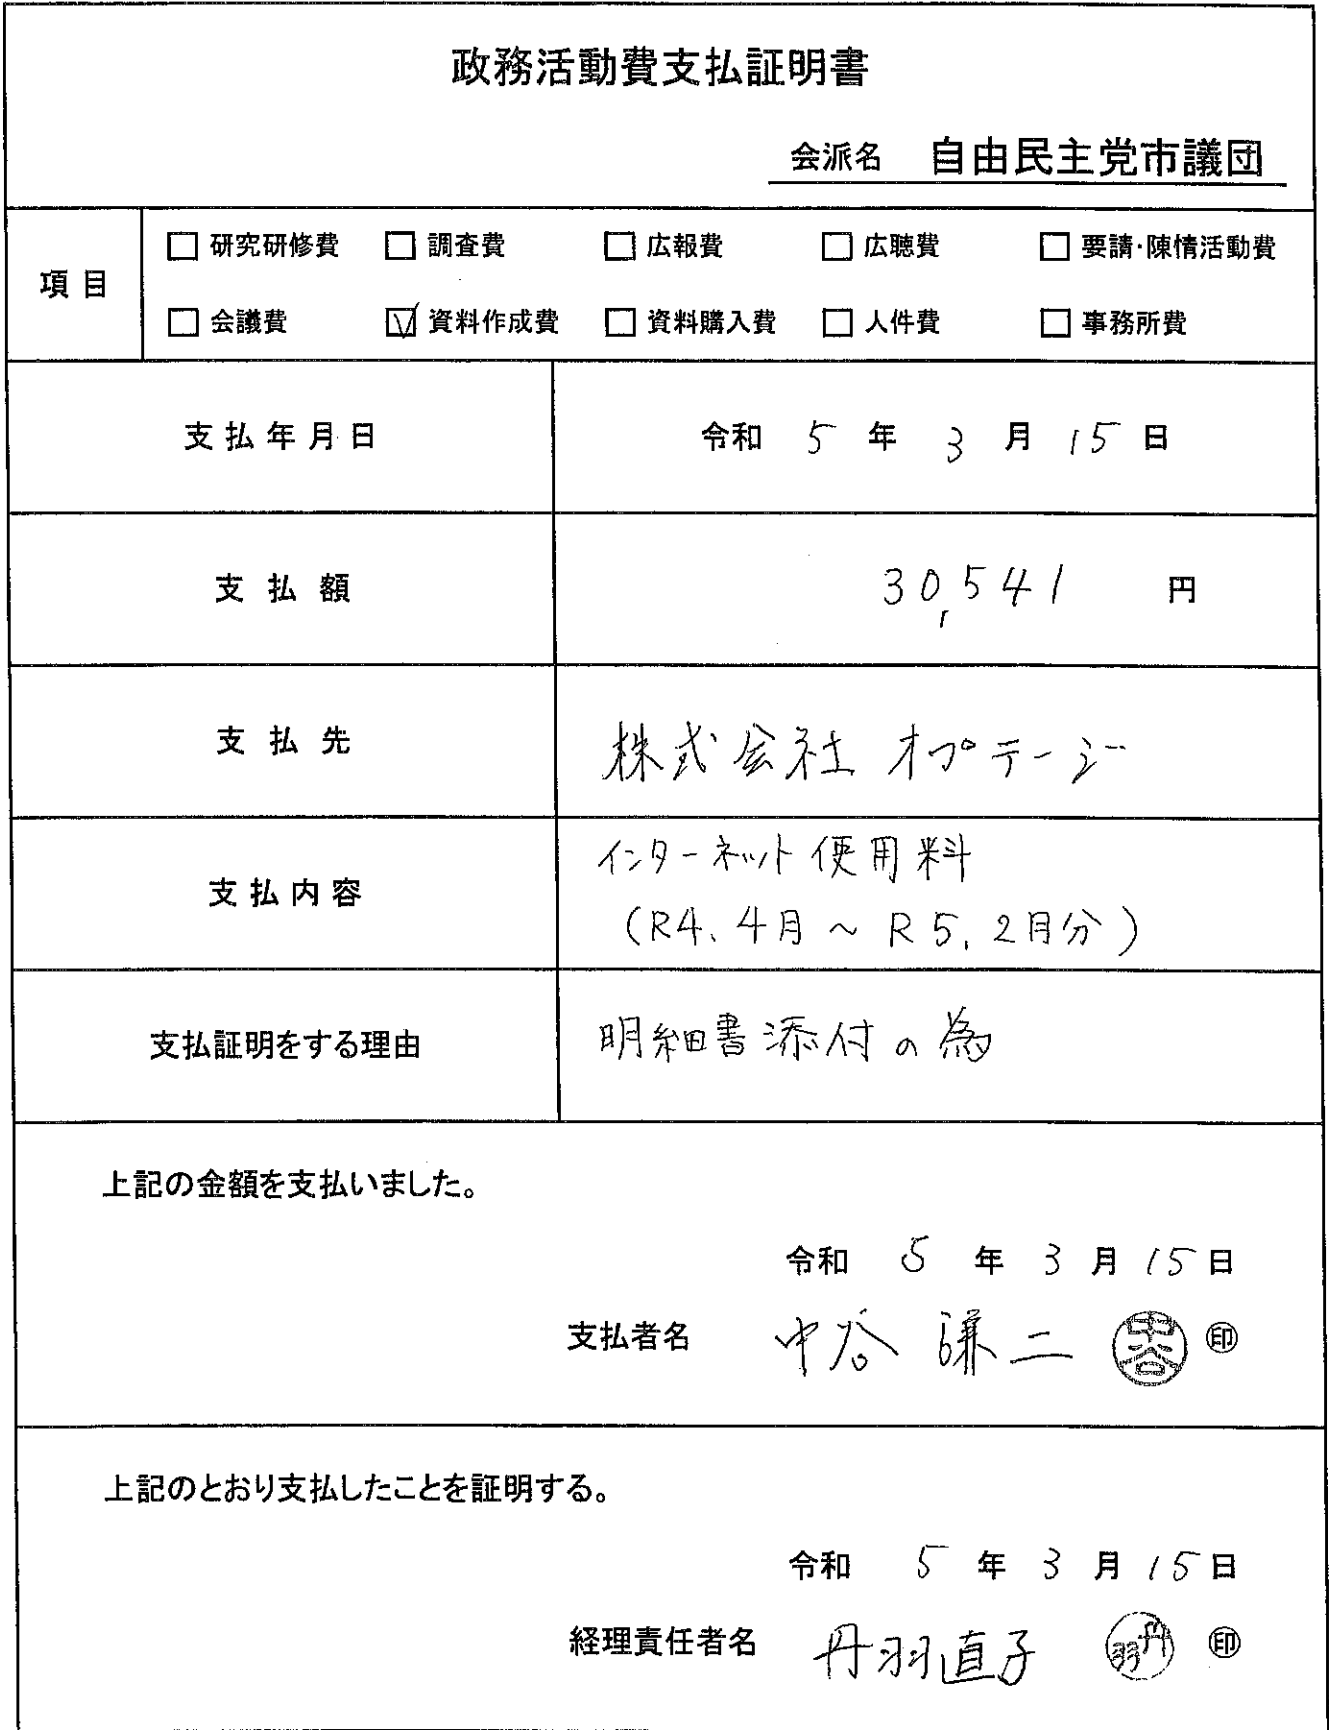 政務活動費支払証明書
会派名 自由民主党市議団
項目
□ 研究研修費 □ 調査費 □ 広報費 □ 広聴費 □ 要請・陳情活動費
□ 会議費 ☑ 資料作成費 □ 資料購入費 □ 人件費 □ 事務所費
支払年月日 令和 5 年 3 月 15 日
支払額 30,541 円
支払先 株式会社 オプテージ
支払内容 インターネット使用料
(R4、4月~R5、2月分)
支払証明をする理由 明細書添付の為
上記の金額を支払いました。
令和 5 年 3 月 15 日
支払者名 中谷 謙二 中谷 ㊞
上記のとおり支払したことを証明する。
令和 5 年 3 月 15 日
経理責任者名 丹羽直子 丹羽 ㊞